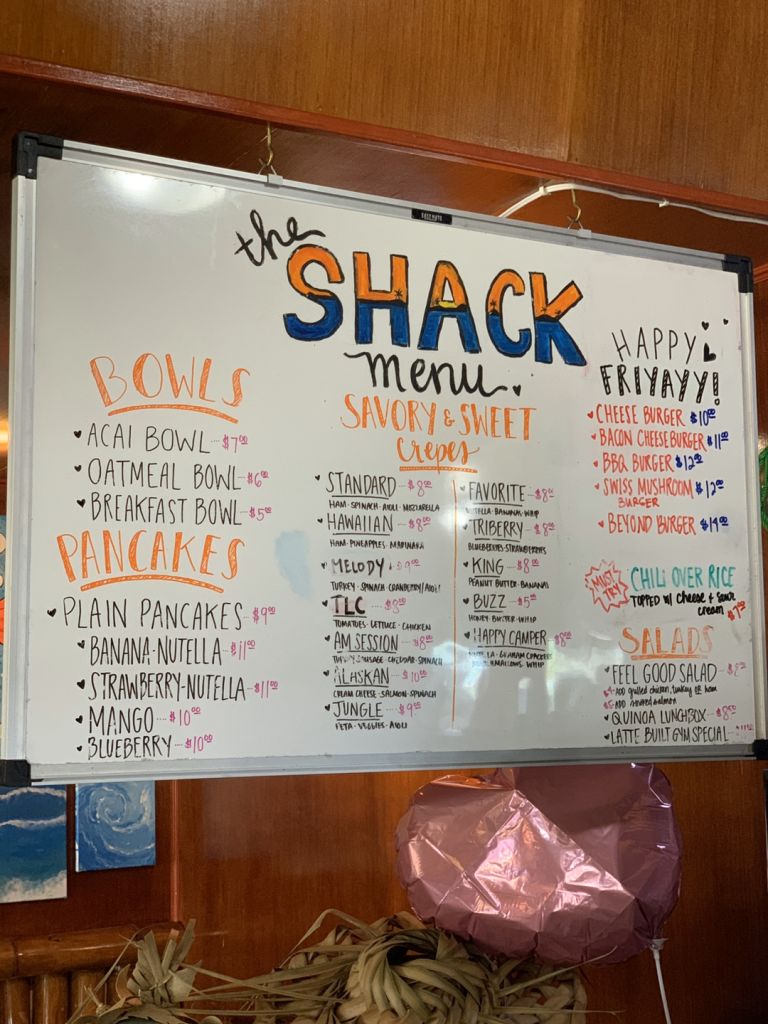 the
SHACK
menu
BOWLS
ACAI BOWL $7⁰⁰
OATMEAL BOWL $6⁰⁰
BREAKFAST BOWL $5⁰⁰
PANCAKES
PLAIN PANCAKES $9⁰⁰
BANANA·NUTELLA $11⁰⁰
STRAWBERRY·NUTELLA $11⁰⁰
MANGO $10⁰⁰
BLUEBERRY $10⁰⁰
SAVORY & SWEET
Crepes
STANDARD $8⁰⁰
HAM·SPINACH·AIOLI·MOZZARELLA
HAWAIIAN $8⁰⁰
HAM·PINEAPPLES·MARINARA
MELODY $9⁰⁰
TURKEY·SPINACH·CRANBERRY/AIOLI
TLC $8⁰⁰
TOMATOES·LETTUCE·CHICKEN
AM SESSION $8⁰⁰
TURKEY SAUSAGE·CHEDDAR·SPINACH
ALASKAN $10⁰⁰
CREAM CHEESE·SALMON·SPINACH
JUNGLE $9⁰⁰
FETA·VEGGIES·AIOLI
FAVORITE $8⁰⁰
NUTELLA·BANANAS·WHIP
TRIBERRY $8⁰⁰
BLUEBERRIES·STRAWBERRIES
KING $8⁰⁰
PEANUT BUTTER·BANANAS
BUZZ $5⁰⁰
HONEY·BUTTER·WHIP
HAPPY CAMPER $8⁰⁰
GRAHAM CRACKERS
WHIP
HAPPY
FRIYAYY!
CHEESE BURGER $10⁰⁰
BACON CHEESE BURGER $11⁰⁰
BBQ BURGER $12⁰⁰
SWISS MUSHROOM $12⁰⁰
BURGER
BEYOND BURGER $14⁰⁰
MUST TRY
CHILI OVER RICE
TOPPED W/ Cheese + Sour
cream $7⁵⁰
SALADS
FEEL GOOD SALAD
$4 ADD grilled chicken, turkey or ham
$5 ADD smoked salmon
QUINOA LUNCHBOX $8⁰⁰
LATTE BUILT GYM SPECIAL